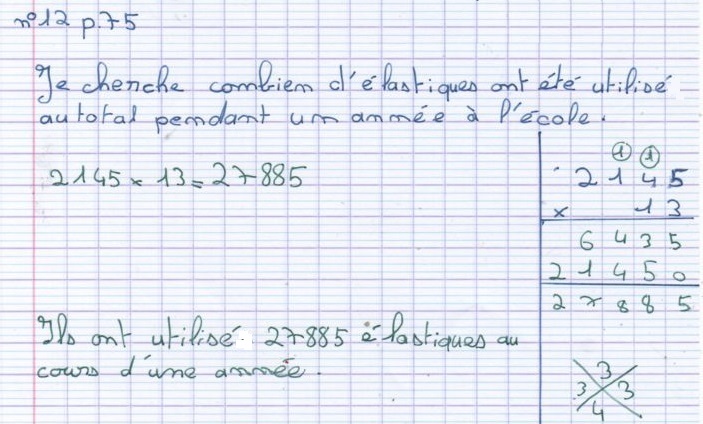 n°12 p.75
Je cherche combien d'élastiques ont été utilisé
au total pendant un année à l'école.
2145 × 13 = 27885
1 1
2 1 4 5
× 1 3
6 4 3 5
2 1 4 5 0
2 7 8 8 5
Ils ont utilisé 27885 élastiques au
cours d'une année.
3
3 3
4